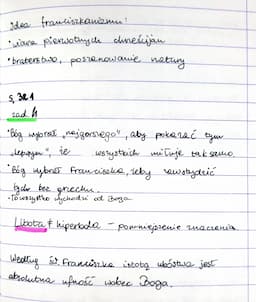 idea franciszkanizmu:
• wiara pierwotnych chrześcijan
• braterstwo, poszanowanie natury
s, 321
zad. 4
• Bóg wybrał „najgorszego", aby pokazać tym
„lepszym", że wszystkich miłuje tak samo.
• Bóg wybrał Franciszka, żeby zawstydzić
tych bez grzechu.
• To wszystko wychodzi od Boga
Litota ≠ hiperbola – pomniejszenie znaczenia
Według św. Franciszka istotą ubóstwa jest
absolutna ufność wobec Boga.